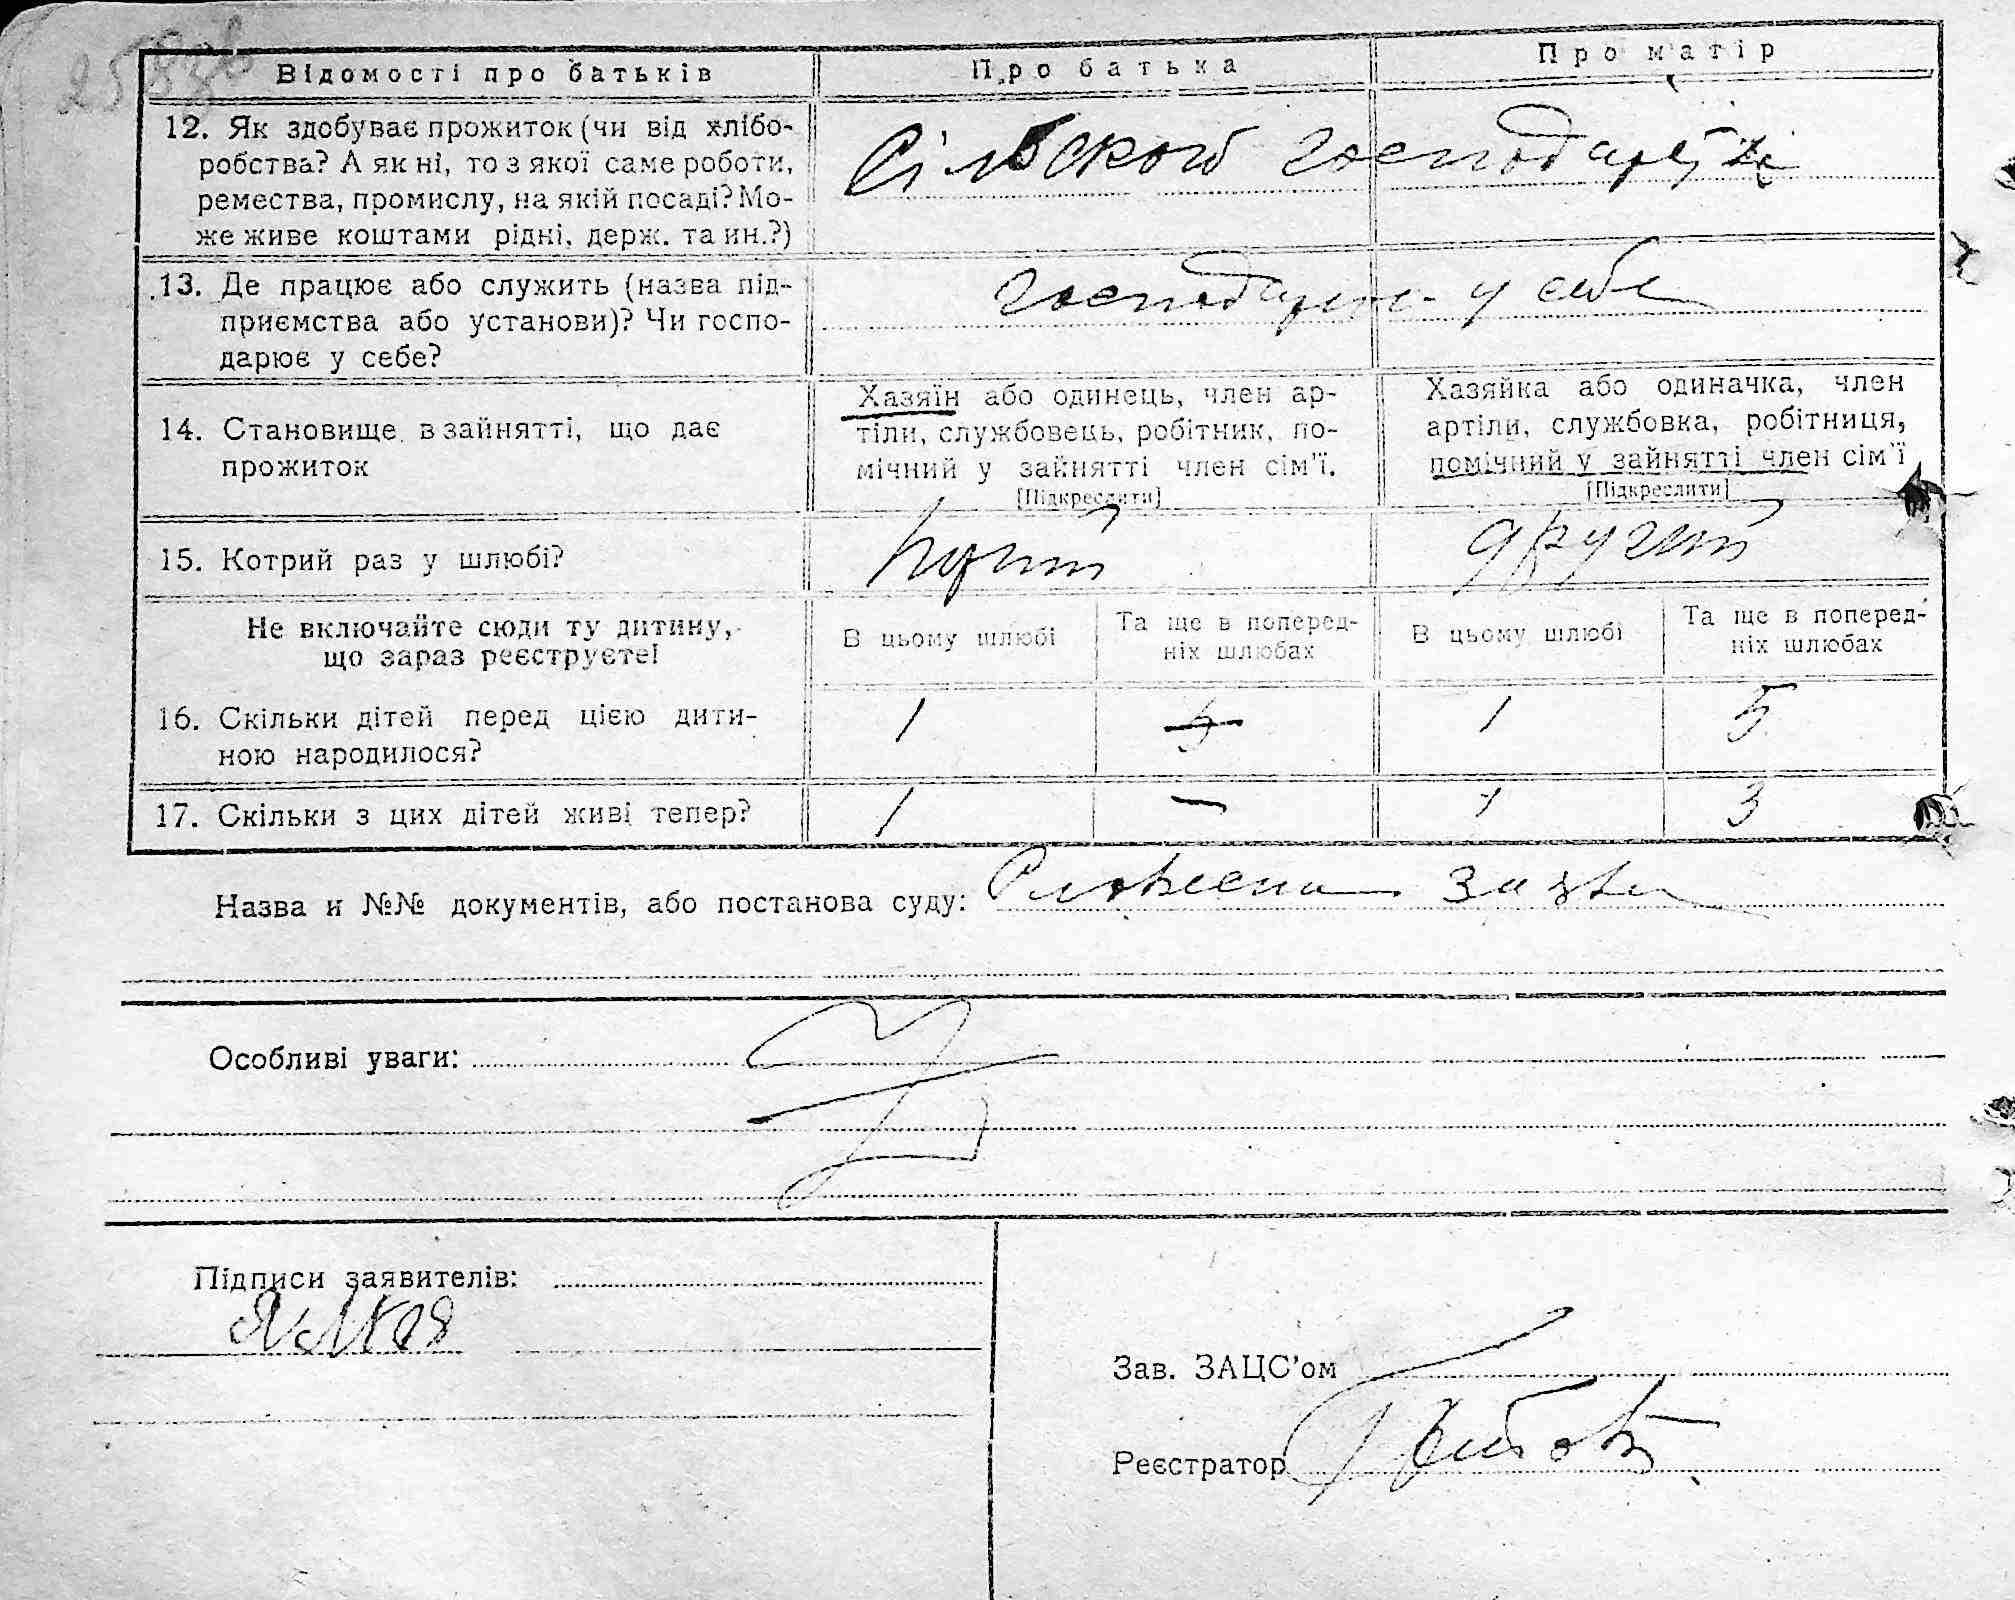 Відомості про батьків
Про батька
Про матір
12. Як здобуває прожиток (чи від хлібо-
робства? А як ні, то з якої саме роботи,
ремества, промислу, на якій посаді? Мо-
же живе коштами рідні, держ. та ин.?)
Сільского господарства
13. Де працює або служить (назва під-
приємства або установи)? Чи госпо-
дарює у себе?
господарює у себе
14. Становище в зайнятті, що дає
прожиток
Хазяїн або одинець, член ар-
тіли, службовець, робітник, по-
мічний у зайнятті член сім'ї.
[Підкреслити]
Хазяйка або одиначка, член
артіли, службовка, робітниця,
помічний у зайнятті член сім'ї
[Підкреслити]
15. Котрий раз у шлюбі?
другий
Не включайте сюди ту дитину,
що зараз реєструєте!
В цьому шлюбі
Та ще в поперед-
ніх шлюбах
В цьому шлюбі
Та ще в поперед-
ніх шлюбах
16. Скільки дітей перед цією дити-
ною народилося?
1
1
5
17. Скільки з цих дітей живі тепер?
1
–
1
3
Назва и №№ документів, або постанова суду:
Особливі уваги:
Підписи заявителів:
Зав. ЗАЦС'ом
Реєстратор